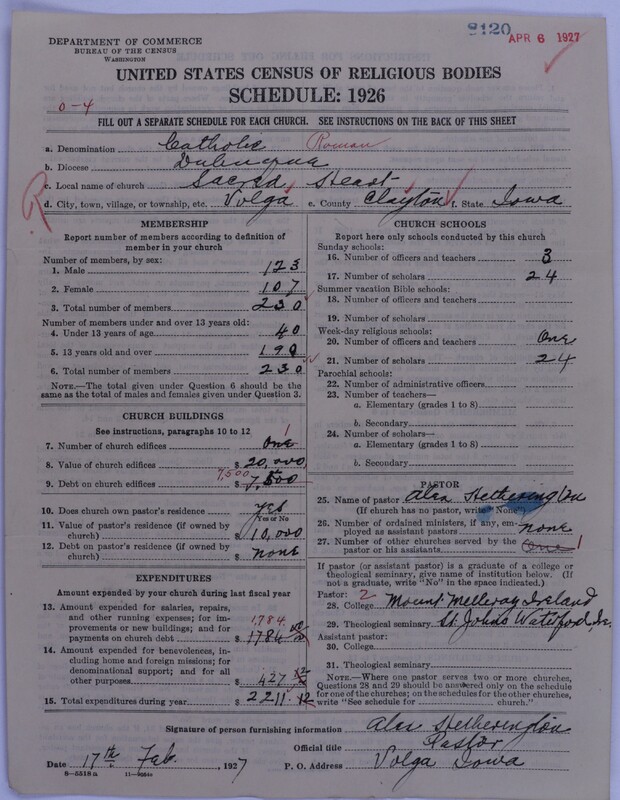 8120 APR 6 1927
DEPARTMENT OF COMMERCE
BUREAU OF THE CENSUS
WASHINGTON
UNITED STATES CENSUS OF RELIGIOUS BODIES
SCHEDULE: 1926
0-4
FILL OUT A SEPARATE SCHEDULE FOR EACH CHURCH. SEE INSTRUCTIONS ON THE BACK OF THIS SHEET
a. Denomination Catholic Roman
b. Diocese
c. Local name of church Sacred Heart
R
d. City, town, village, or township, etc. Volga e. County Clayton f. State Iowa
MEMBERSHIP
Report number of members according to definition of
member in your church
Number of members, by sex:
1. Male 123
2. Female 107
3. Total number of members 230
Number of members under and over 13 years old:
4. Under 13 years of age 40
5. 13 years old and over 190
6. Total number of members 230
NOTE.—The total given under Question 6 should be the
same as the total of males and females given under Question 3.
CHURCH BUILDINGS
See instructions, paragraphs 10 to 12
7. Number of church edifices One 1
8. Value of church edifices $ 20,000
7,500
9. Debt on church edifices $ 7,500
10. Does church own pastor's residence yes
Yes or No
11. Value of pastor's residence (if owned by
church) $ 10,000
12. Debt on pastor's residence (if owned by
church) $ none
EXPENDITURES
Amount expended by your church during last fiscal year
13. Amount expended for salaries, repairs,
and other running expenses; for im-
provements or new buildings; and for 1,784.
payments on church debt $ 1784
14. Amount expended for benevolences,
including home and foreign missions; for
denominational support; and for all
other purposes $ 427
15. Total expenditures during year $ 2211.12
CHURCH SCHOOLS
Report here only schools conducted by this church
Sunday schools:
16. Number of officers and teachers 3
17. Number of scholars 24
Summer vacation Bible schools:
18. Number of officers and teachers
19. Number of scholars
Week-day religious schools:
20. Number of officers and teachers One
21. Number of scholars 24
Parochial schools:
22. Number of administrative officers
23. Number of teachers—
a. Elementary (grades 1 to 8)
b. Secondary
24. Number of scholars—
a. Elementary (grades 1 to 8)
b. Secondary
PASTOR
25. Name of pastor Alex Hetherington
(If church has no pastor, write "None")
26. Number of ordained ministers, if any, em-
ployed as assistant pastors none
27. Number of other churches served by the
pastor or his assistants One 1
If pastor (or assistant pastor) is a graduate of a college or
theological seminary, give name of institution below. (If
not a graduate, write "No" in the space indicated.)
Pastor: 2
28. College Mount Melleray Ireland
29. Theological seminary St Johns Waterford, Ire.
Assistant pastor:
30. College
31. Theological seminary
NOTE.—Where one pastor serves two or more churches,
Questions 28 and 29 should be answered only on the schedule
for one of the churches; on the schedules for the other churches,
write "See schedule for church."
Signature of person furnishing information Alex Hetherington
Official title Pastor
Date 17th Feb. 1927 P. O. Address Volga Iowa